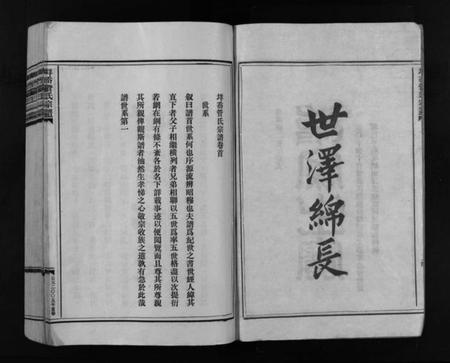 世澤綿長
坪岙管氏宗譜卷首
世系
叙曰譜首世系何也序源流辨昭穆也夫譜爲紀世之書世經人緯其
直下者父子相繼橫列者兄弟相聯以五世爲率五世格盡以次提衍
若網在綱有條不紊各於名下詳載事迹以便閱覽而且尊其所尊親
其所親俾觀斯譜者油然生孝悌之心敬宗收族之道孰有急於此哉
譜世系第一